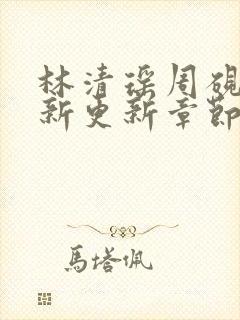 林清瑶周砚
新更新章节
馬塔佩